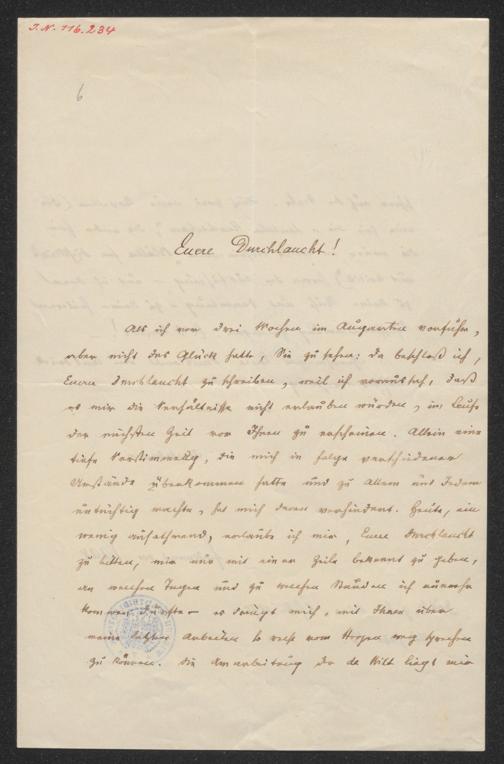 I.N. 116.234
6
Euere Durchlaucht!
Als ich vor drei Wochen im Augarten vorfuhr,
aber nicht das Glück hatte, Sie zu sehen: da beschloß ich,
Euere Durchlaucht zu schreiben, weil ich voraussah, daß
es mir die Verhältnisse nicht erlauben würden, im Laufe
der nächsten Zeit vor Ihnen zu erscheinen. Allein eine
tiefe Verstimmung, die mich in Folge verschiedener
Umstände überkommen hatte und zu Allem und Jedem
untüchtig machte, hat mich daran verhindert. Heute, ein
wenig aufathmend, erlaube ich mir, Euere Durchlaucht
zu bitten, mir nur mit einer Zeile bekannt zu geben,
an welchen Tagen und zu welchen Stunden ich
kommen dürfte – es drängt mich, mit Ihnen über
meine letzten Arbeiten so recht vom Herzen weg sprechen
zu können. Die Umarbeitung der de Witt liegt mir